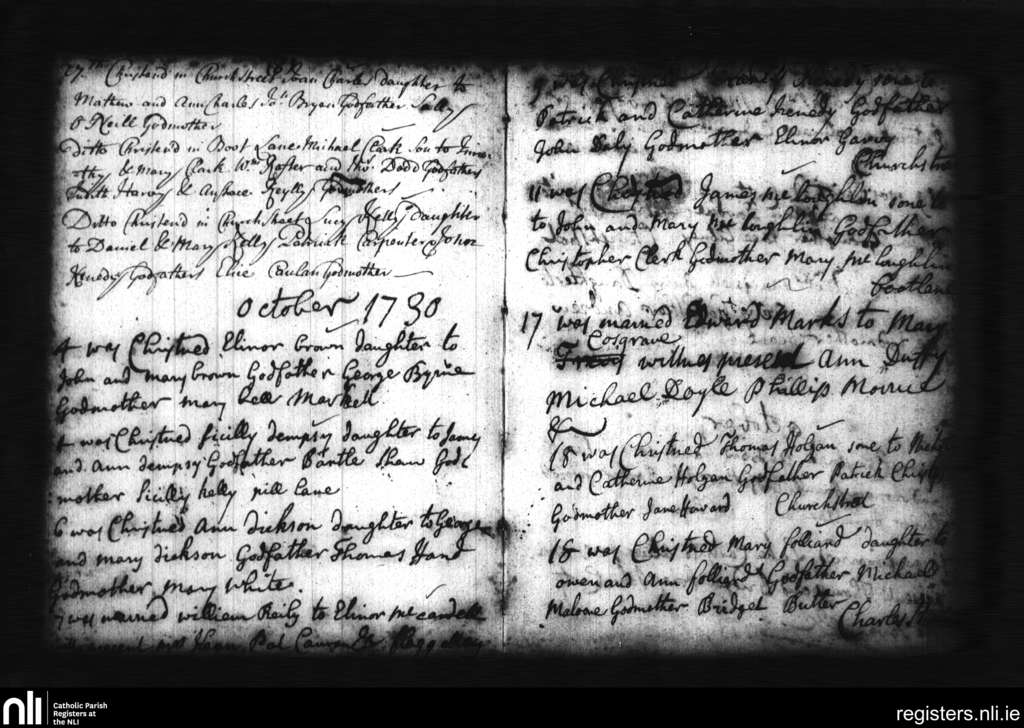 27th Christend in Church Street Joan Charles daughter to
Mathew and Ann Charles Jon. Bryan Godfather Sally
O Neill Godmother
Ditto Christend in Boot Lane Michael Clark Son to Timo
othy & Mary Clark Wm. Roster and Tho. Dodd Godfathers
Judith Harvy & Anstace Reylly Godmothers
Ditto Christend in Church Street Lucy Kelly Daughter
to Daniel & Mary Kelly Patrick Carpenter & John
Kenedy Godfathers Elie Caulan Godmother
October 1730
4 was Christned Elinor brown daughter to
John and mary brown Godfather George Byrne
Godmother mary hell Markett
4 was Christned sicilly dempsy daughter to Jamy
and Ann dempsy Godfather Bartle Shaw God
mother Sicilly kelly pill Lane
6 was Christned Ann dickson daughter to George
and mary dickson Godfather Thomas Hand
Godmother mary white.
7 was married william Reily to Elinor Mc candell
present Pat
9 was to
Patrick and Catherine Kenedy Godfather
John Daly Godmother Elinor Garvy
Church stre
11 was Christned James Mc loughlin sone
to John and Mary Mc loughlin Godfather
Christopher Clerk Godmother Mary Mc loughlin
bootlane
17 was married Edward Marks to Mary
Cosgrave
witnes present Ann Duffy
Michael Doyle Phillip Morris
&c
18 was Christned Thomas Holgan sone to Mich
and Catherine Holgan Godfather Patrick
Godmother Jane Havard Churchstreet
18 was Christned Mary folliard daughter to
owen and Ann folliard Godfather Michael
Malone Godmother Bridget Butler
Charles St
nli
Catholic Parish
Registers at
the NLI
registers.nli.ie